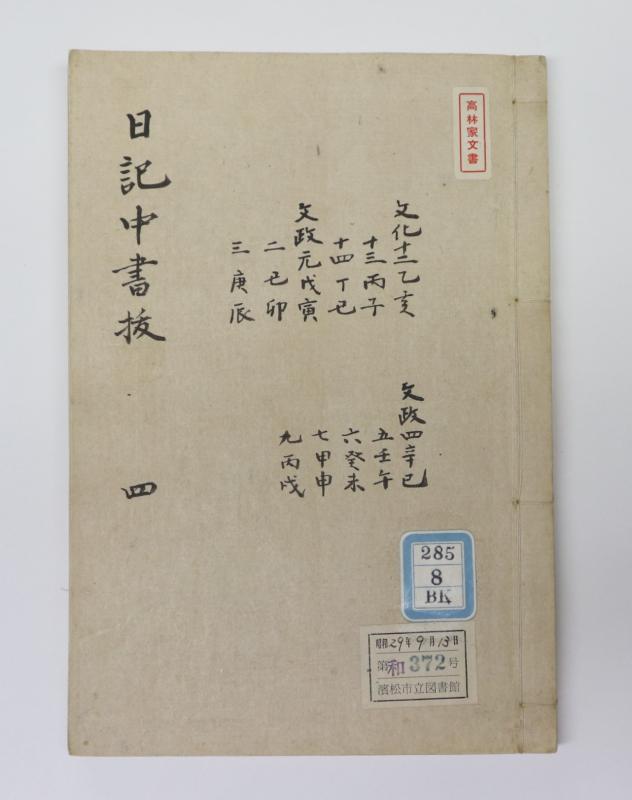 高林家文書
文化十二乙亥
十三丙子
十四丁巳
文政元戊寅
二己卯
三庚辰
文政四辛巳
五壬午
六癸未
七甲申
九丙戌
日記中書抜 四
285
8
BK
昭和29年9月13日
第和372号
濱松市立図書館